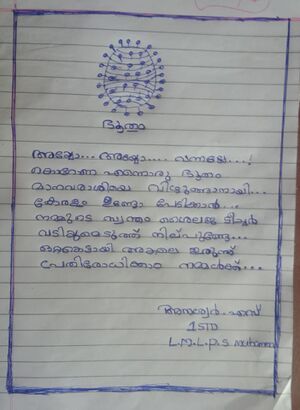 ഭൂതം
അയ്യോ... അയ്യോ.... വന്നയ്യേ...!
കൊറോണ എന്നൊരു ഭൂതം
മാനവരാശിയെ വിഴുങ്ങാനായി...
കേരളം ഉണ്ടോ പേടിക്കാൻ...
നമ്മുടെ സ്വന്തം ശൈലജ ടീച്ചർ
വടിയുമെടുത്ത് നില്പുണ്ടേ...
ഒറ്റക്കെട്ടായി അകലെ ഇരുന്ന്
പ്രതിരോധിക്കാം നമ്മൾക്ക്...
എസ്
1 STD
L.M.L.P.S